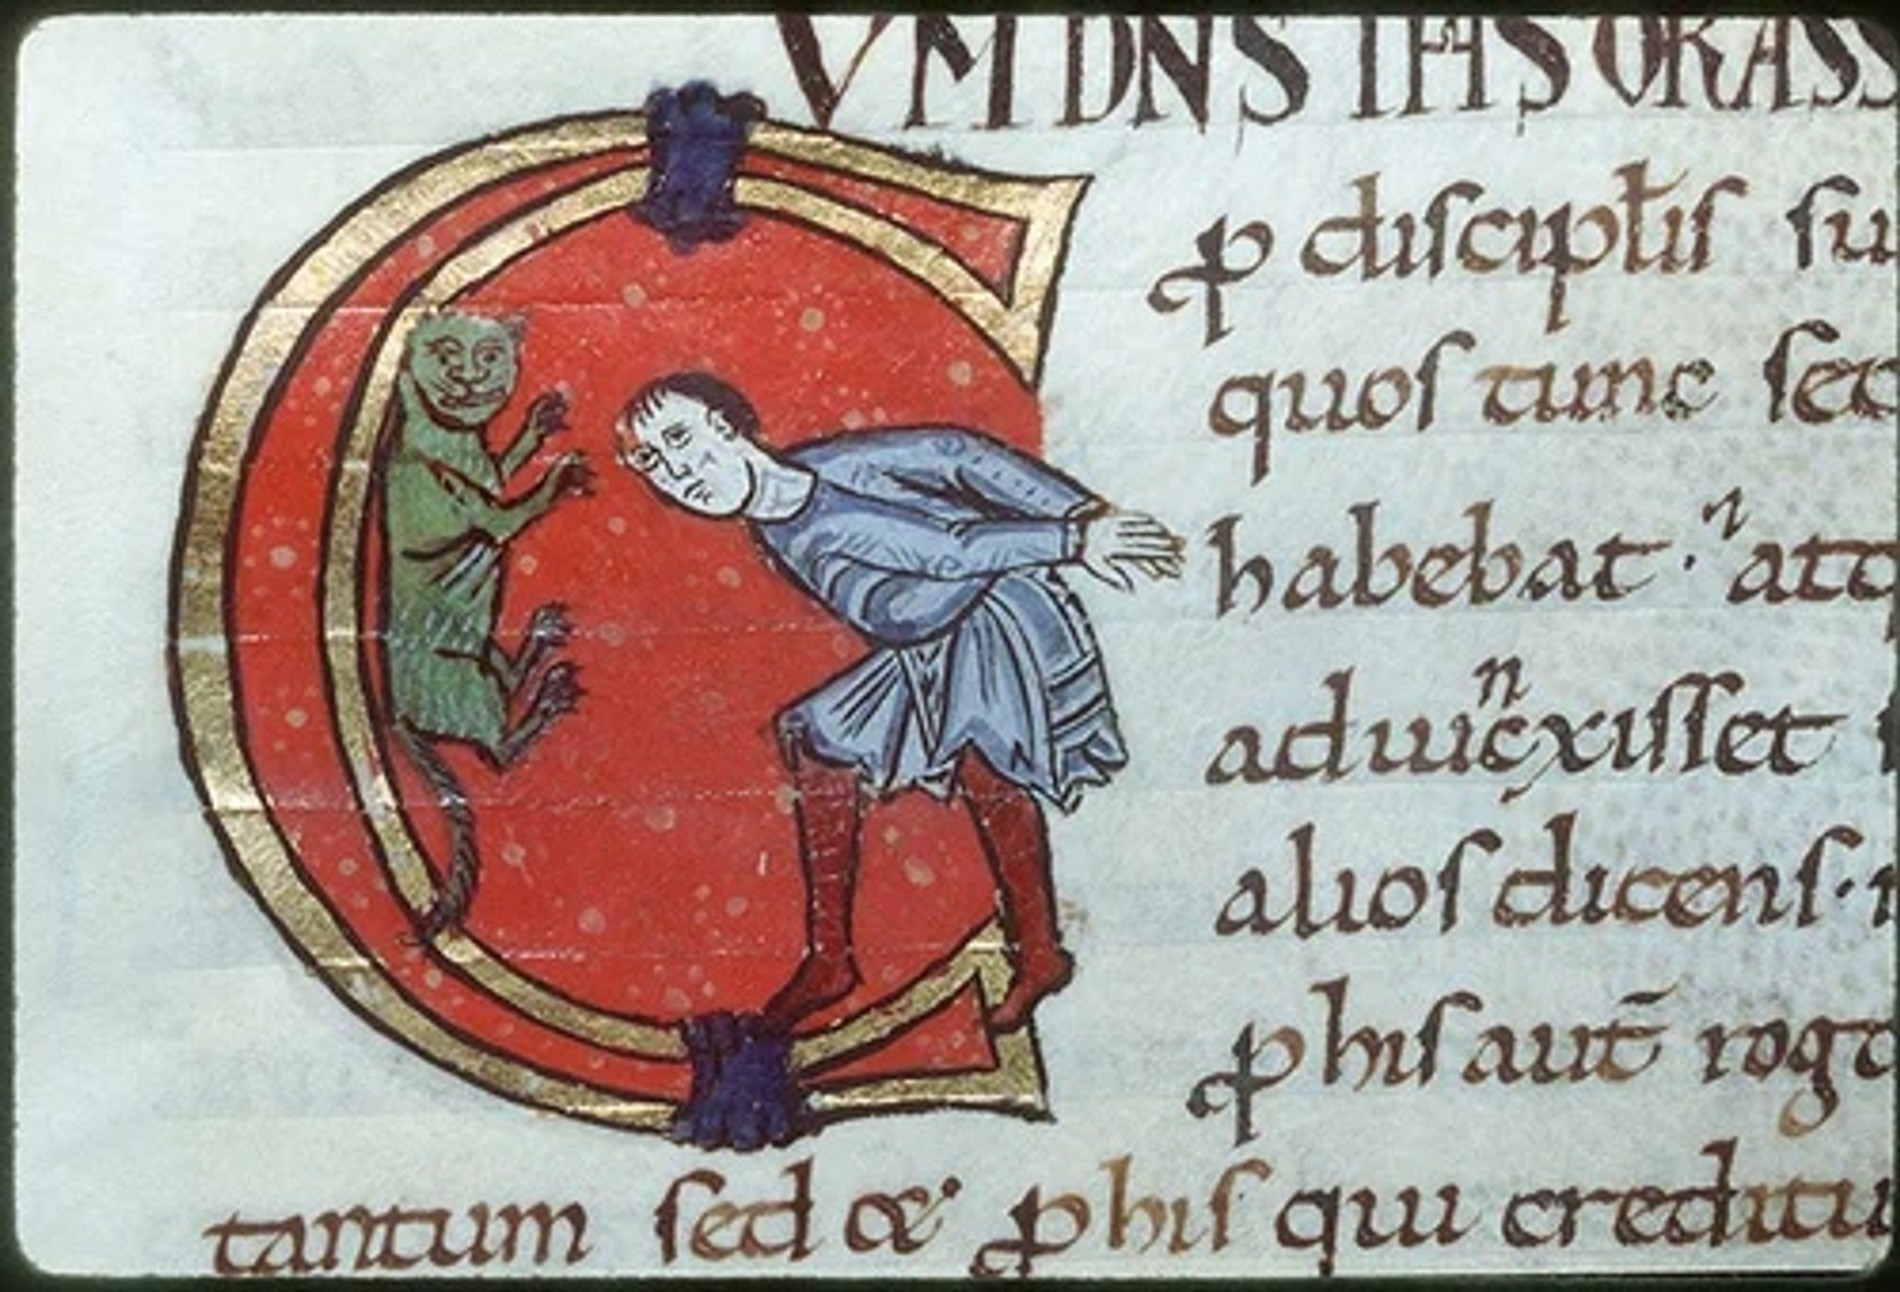 CVM DNS IHS ORASS
ꝓ discipłis su
quos tunc sec
habebat · atq
aduicxisset
n
alios dicens·
ꝓ his aut̄ roga
tantum sed & ꝓ his qui creditu